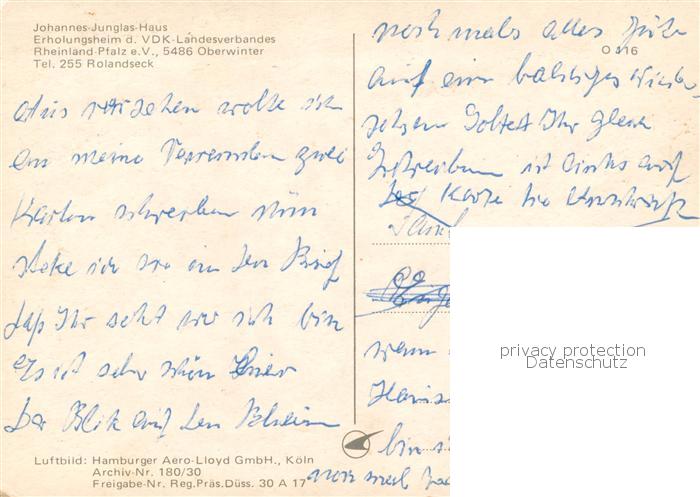 Johannes-Junglas-Haus
Erholungsheim d. VDK-Landesverbandes
Rheinland-Pfalz e.V., 5486 Oberwinter
Tel. 255 Rolandseck
Aus versehen wolte ich
an meine Verwanten zwei
Karten schreiben nun
steke ich sie in den Brief
daß Ihr seht wo ich bin
Es ist sehr schön hier
Der Blik auf den Rhein
Luftbild: Hamburger Aero-Lloyd GmbH., Köln
Archiv-Nr. 180/30
Freigabe-Nr. Reg.Präs.Düss. 30 A 17
O 416
noch mals alles Gute
auf ein baldiges Wieder
sehen Soltet Ihr gleich
schreiben ist links auf
Karte die Anschrift
wenn
bin
noch mal
privacy protection
Datenschutz